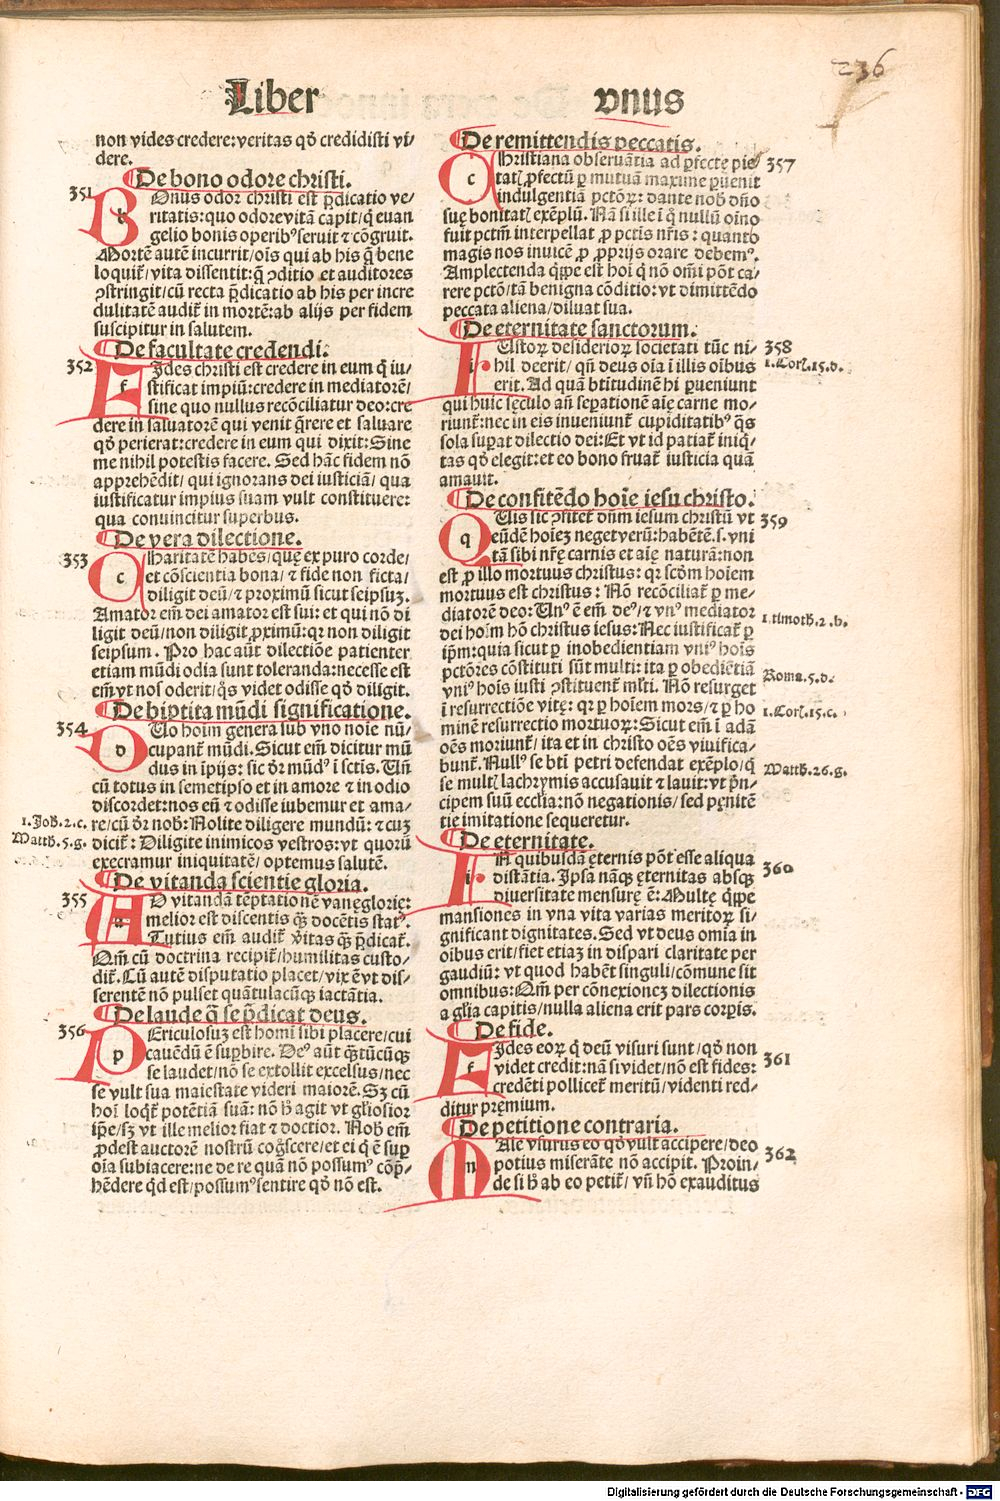 236
Liber vnus
non vides credere:veritas qd̄ credidisti vi⸗
dere.
De bono odore christi.
351
BOnus odor christi est p̄dicatio ve⸗
ritatis:quo odore vitā capit/q̇ euan
gelio bonis operibꝰ seruit ⁊ cōgruit.
Mortē autē incurrit/oīs qui ab his q̄ bene
loquit̄/vita dissentit:q̄ ꝓditio et auditores
ꝯstringit/cū recta p̄dicatio ab his per incre
dulitatē audit̄ in mortē:ab alijs per fidem
suscipitur in salutem.
De facultate credendi.
352
FIdes christi est credere in eum q̇ iu⸗
stificat impiū:credere in mediatorē/
sine quo nullus recōciliatur deo:cre
dere in saluatorē qui venit q̄rere et saluare
qd̄ perierat:credere in eum qui dixit:Sine
me nihil potestis facere. Sed hāc fidem nō
apprehēdit/ qui ignorans dei iusticiā/ qua
iustificatur impius suam vult constituere:
qua conuincitur superbus.
De vera dilectione.
353
CHaritatē habes/quę ex puro corde/
et cōscientia bona/ ⁊ fide non ficta/
diligit deū/⁊ proximū sicut seipsuꝫ.
Amator em̄ dei amator est sui: et qui nō di
ligit deū/non diligit ꝓximū:qꝛ non diligit
seipsum. Pro hac aūt dilectiōe patienter
etiam mūdi odia sunt toleranda:necesse est
em̄ vt nos oderit/q̇s videt odisse qd̄ diligit.
De bip̄tita mūdi significatione.
354
DUo hoim̄ genera sub vno noīe nū⸗
cupant̄ mūdi. Sicut em̄ dicitur mū
dus in īpijs: sic dr̄ mūdꝰ ī sctīs. Un̄
cū totus in semetipso et in amore ⁊ in odio
discordet:nos eū ⁊ odisse iubemur et ama⸗
1.Joh̄.2.c.
re/cū dr̄ nob̄:Nolite diligere mundū: ⁊ cuꝫ
Matth.5.g.
dicit̄: Diligite inimicos vestros:vt quorū
execramur iniquitatē/ optemus salutē.
De vitanda scientie gloria.
355
AD vitandā tēptationē vanę glorię:
melior est discentis q̄ꝫ docētis statꝰ.
Tutius em̄ audit̄ v̄itas q̄ꝫ p̄dicat̄.
Qm̄ cū doctrina recipit̄/humilitas custo⸗
dit̄. Cū autē disputatio placet/vix ē vt dis⸗
serentē nō pulset quātulacūqꝫ iactātia.
De laude q̄ se p̄dicat deus.
356
PEriculosuꝫ est homī sibi placere/cui
cauēdū ē suꝑbire. Deꝰ aūt q̄ꝫtūcūqꝫ
se laudet/nō se extollit excelsus/nec
se vult sua maiestate videri maiorē. Sꝫ cū
hoī loqt̄ potētiā suā: nō h̄ agit vt gl̄iosior
ip̄e/sꝫ vt ille melior fiat ⁊ doctior. Nob̄ em̄
ꝓdest auctorē nostrū coḡscere/et ei q̇ ē suꝑ
oīa subiacere:ne de re quā nō possumꝰ cōp̄⸗
hēdere qd̄ est/possumꝰ sentire qd̄ nō est.
De remittendis peccatis.
357
CHristiana obseruātia ad ꝑfectę pie
tat̄ ꝓfectū ꝑ mutuā maxime ꝑuenit
indulgentiā pctōꝝ: dante nob̄ dn̄o
suę bonitat̄ exēplū. Nā si ille ī q̇ nullū oīno
fuit pctm̄ interpellat ꝓ pctīs nr̄is : quanto
magis nos inuicē ꝓ ꝓprijs orare debemꝰ.
Amplectenda q̇ꝑe est hoī q̇ nō om̄i pōt ca⸗
rere pctō/tā benigna cōditio:vt dimittēdo
peccata aliena/diluat sua.
De eternitate sanctorum.
358
IUstoꝝ desiderioꝝ societati tūc ni⸗
1.Corī.15.d.
hil deerit/ qn̄ deus oīa ī illis oībus
erit. Ad quā btītudinē hi ꝑueniunt
qui huic sęculo an̄ seꝑationē aię carne mo⸗
riunt̄:nec in eis inueniunt̄ cupiditatibꝰ q̇s
sola suꝑat dilectio dei:Et vt id patiat̄ iniq̇⸗
tas qd̄ elegit:et eo bono fruat̄ iusticia quā
amauit.
De confitēdo hoīe iesu christo.
359
QUis sic ꝯfitet̄ dn̄m iesum christū vt
eūdē hoīeꝫ neget verū:habētē.s.vni
tā sibi nr̄ę carnis et aīę naturā:non
est ꝓ illo mortuus christus: qꝛ scd̄m hoīem
mortuus est christus : Nō recōciliat̄ ꝑ me⸗
diatorē deo: Unꝰ ē em̄ deꝰ/⁊ vnꝰ mediator
1.timoth.2.b.
dei hoīm hō christus iesus:Nec iustificat̄ ꝑ
ip̄m:quia sicut ꝑ inobedientiam vniꝰ hoīs
pctōres cōstituti sūt multi: ita ꝑ obediētiā
Roma.5.d.
vniꝰ hoīs iusti ꝯstituent̄ ml̄ti. Nō resurget
ī resurrectiōe vitę: qꝛ ꝑ hoīem mors/⁊ ꝑ ho
1.Corī.15.c.
minē resurrectio mortuoꝝ: Sicut em̄ ī adā
oēs moriunt̄/ ita et in christo oēs viuifica⸗
bunt̄. Nullꝰ se btī petri defendat exēplo/q̇
Matth.26.g.
se mult̄ lachrymis accusauit ⁊ lauit:vt p̄n⸗
cipem suū eccl̄ia:nō negationis/ sed pęnitē
tie imitatione sequeretur.
De eternitate.
360
IN quibusdā ęternis pōt esse aliqua
distātia. Ipsa nāqꝫ ęternitas absqꝫ
diuersitate mensurę ē: Multę q̇ꝑe
mansiones in vna vita varias meritoꝝ si⸗
gnificant dignitates. Sed vt deus omīa in
oībus erit/fiet etiaꝫ in dispari claritate per
gaudiū: vt quod habēt singuli/cōmune sit
omnibus:Qm̄ per cōnexioneꝫ dilectionis
a gl̄ia capitis/nulla aliena erit pars corꝑis.
De fide.
361
FIdes eoꝝ q̇ deū visuri sunt/qd̄ non
videt credit:nā si videt/nō est fides:
credēti pollicet̄ meritū/videnti red⸗
ditur pręmium.
De petitione contraria.
362
MAle vsurus eo qd̄ vult accipere/deo
potius miserāte nō accipit. Proin⸗
de si h̄ ab eo petit̄/ vn̄ hō exauditus
Digitalisierung gefördert durch die Deutsche Forschungsgemeinschaft - DFG